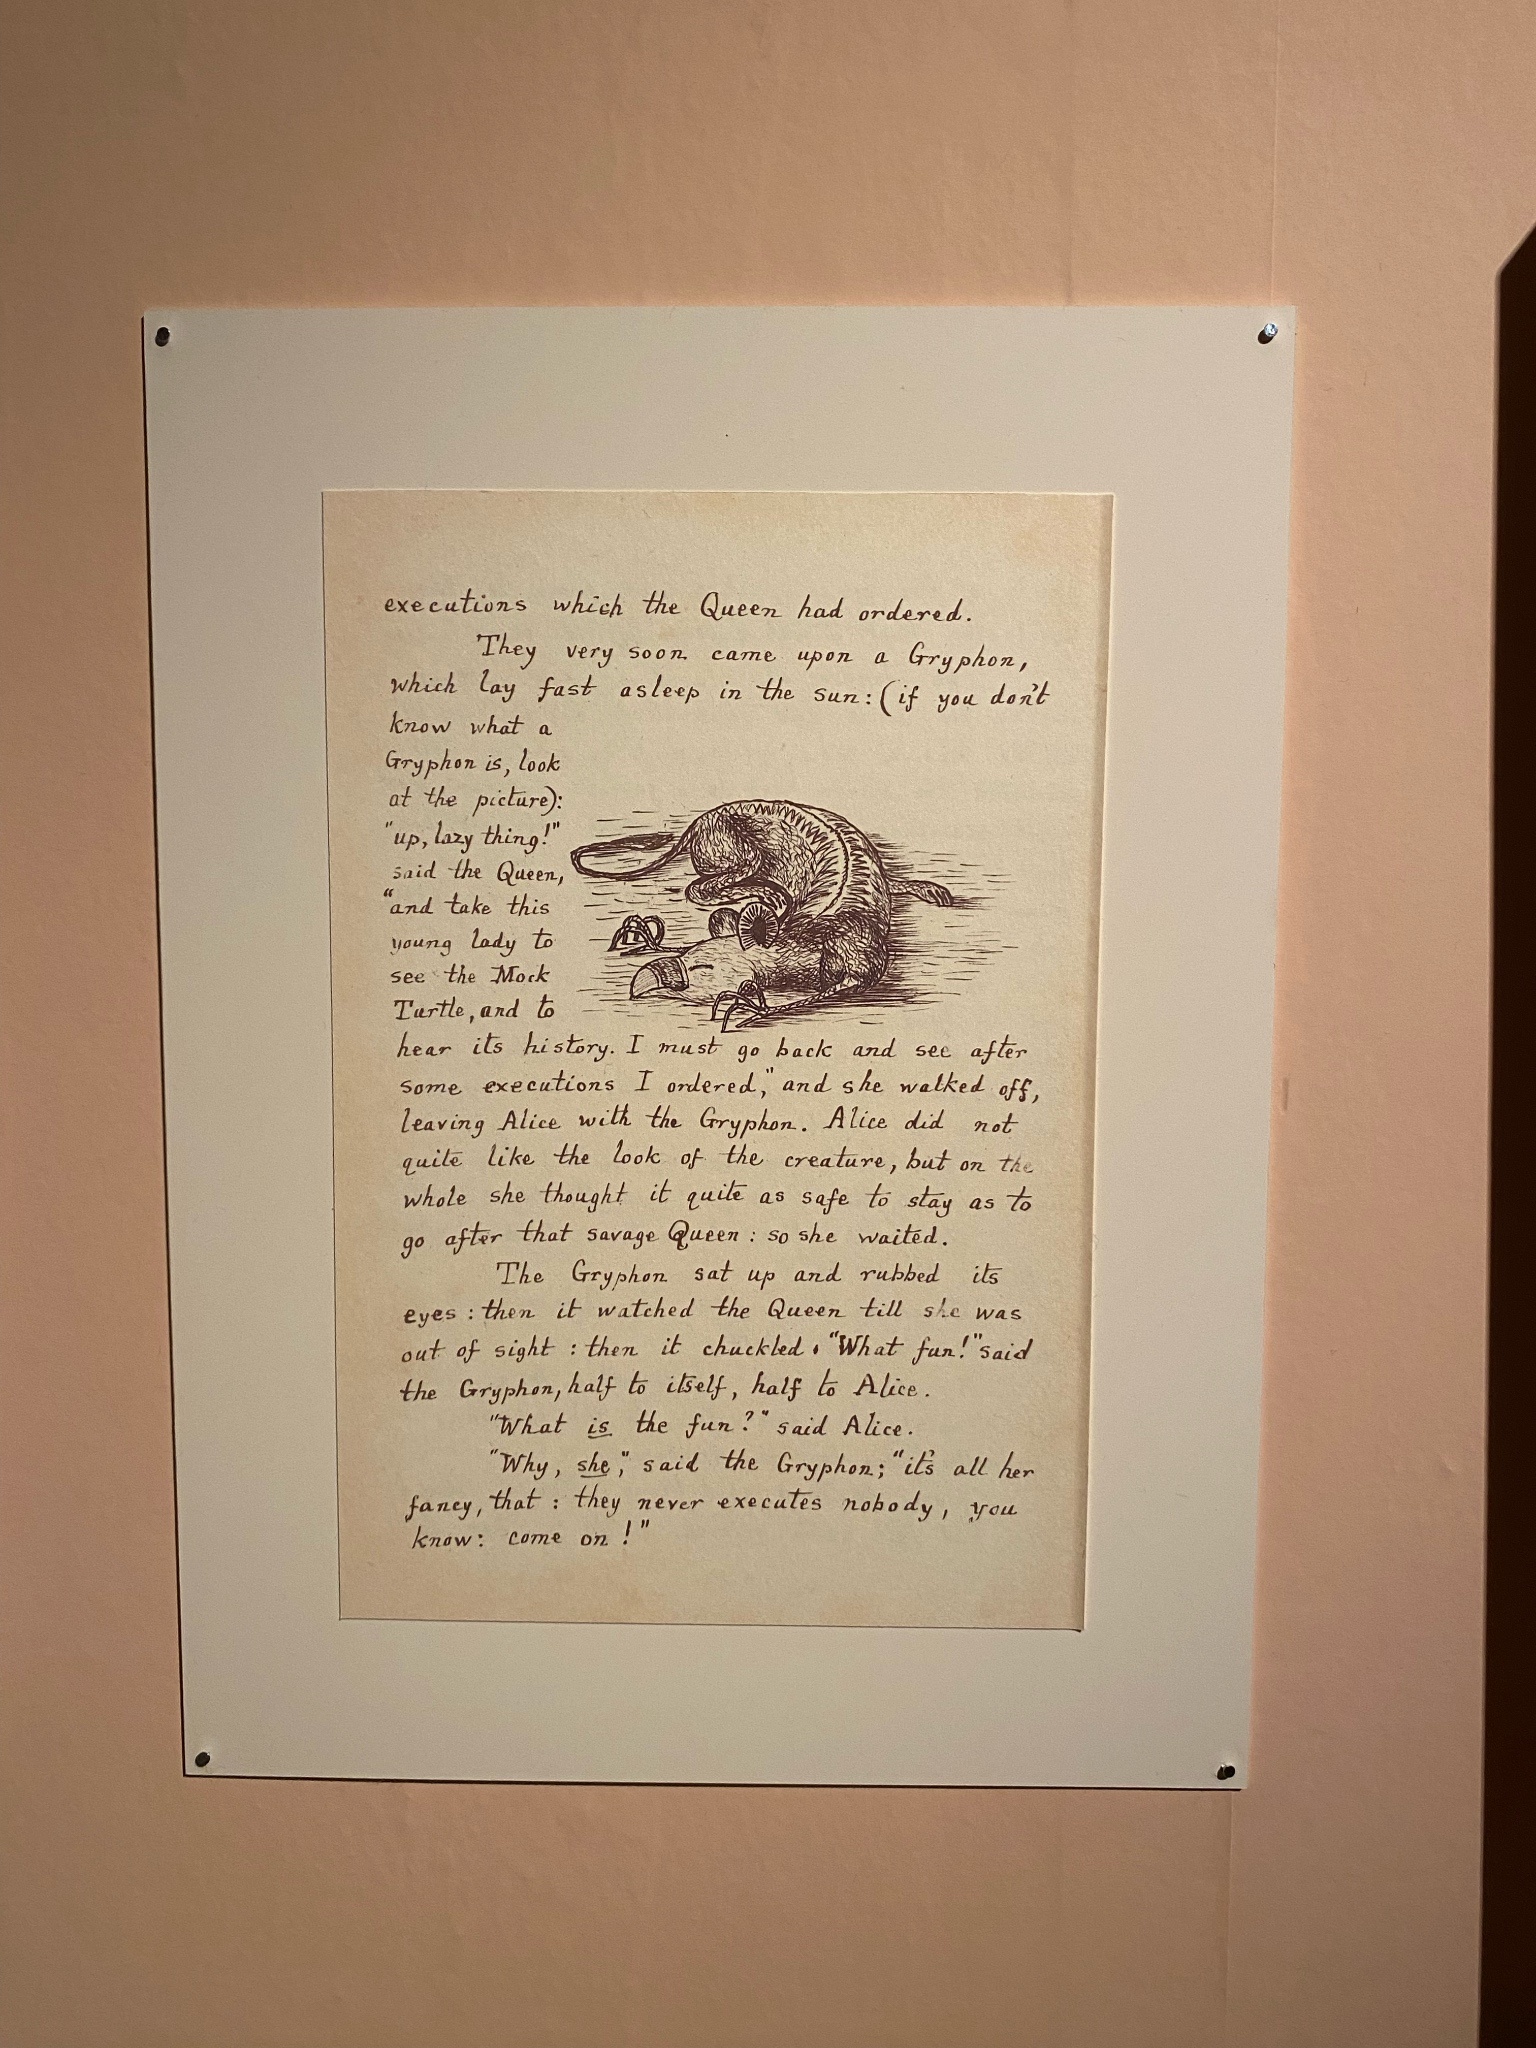 executions which the Queen had ordered.
They very soon came upon a Gryphon,
which lay fast asleep in the sun: (if you don't
know what a
Gryphon is, look
at the picture):
"up, lazy thing!"
said the Queen,
"and take this
young lady to
see the Mock
Turtle, and to
hear its history. I must go back and see after
some executions I ordered," and she walked off,
leaving Alice with the Gryphon. Alice did not
quite like the look of the creature, but on the
whole she thought it quite as safe to stay as to
go after that savage Queen: so she waited.
The Gryphon sat up and rubbed its
eyes: then it watched the Queen till she was
out of sight: then it chuckled. "What fun!" said
the Gryphon, half to itself, half to Alice.
"What is the fun?" said Alice.
"Why, she," said the Gryphon; "it's all her
fancy, that: they never executes nobody, you
know: come on!"